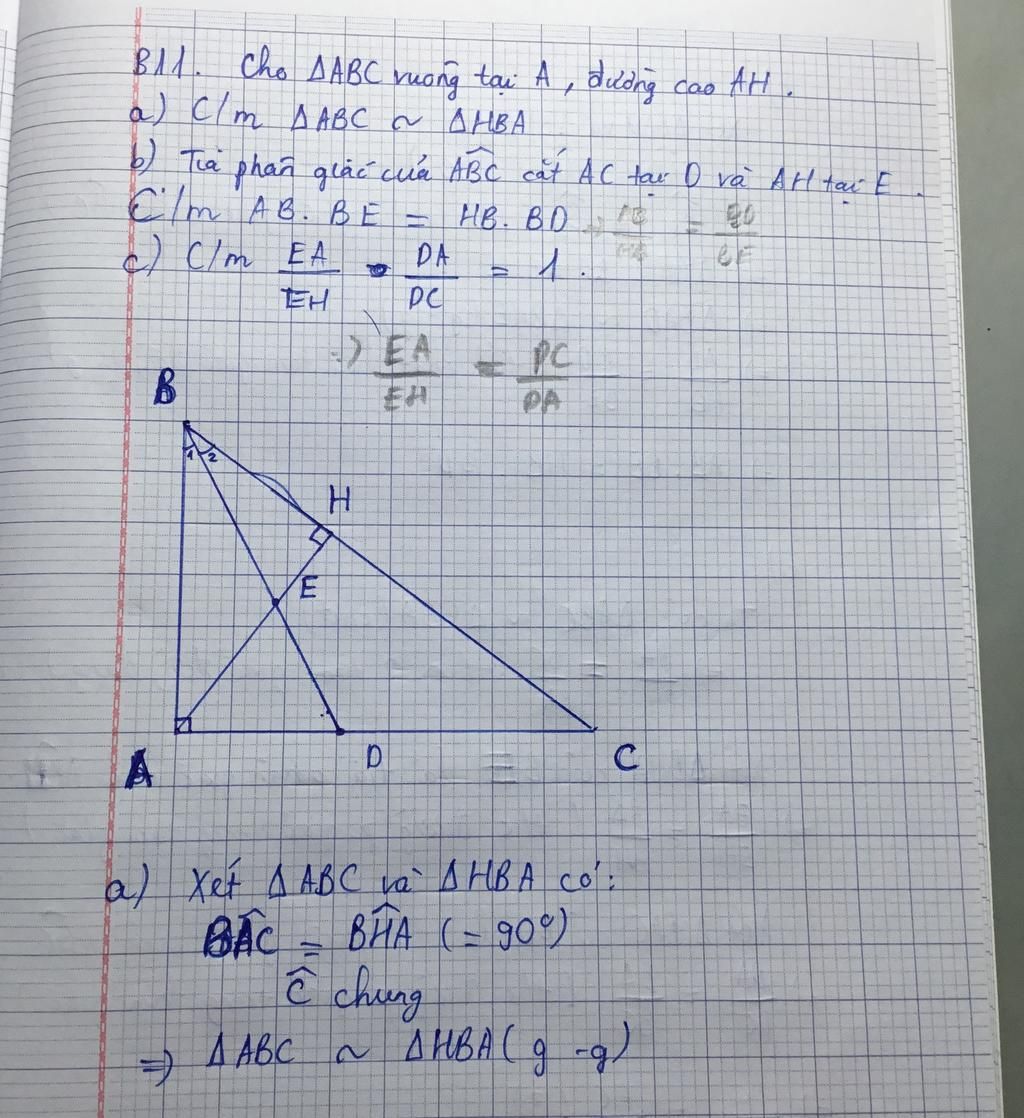 B11. Cho ΔABC vuông tại A, đường cao AH.
a) C/m ΔABC ~ ΔHBA
b) Tia phân giác của \widehat{ABC} cắt AC tại D và AH tại E.
C/m AB. BE = HB. BD → \frac{AB}{HB} = \frac{BD}{BE}
c) C/m \frac{EA}{EH} • \frac{DA}{DC} = 1.
=) \frac{EA}{EH} = \frac{DC}{DA}
B
1 2
H
E
A D C
a) Xét ΔABC và ΔHBA có:
\widehat{BAC} = \widehat{BHA} (= 90°)
\widehat{C} chung
=) ΔABC ~ ΔHBA (g - g)